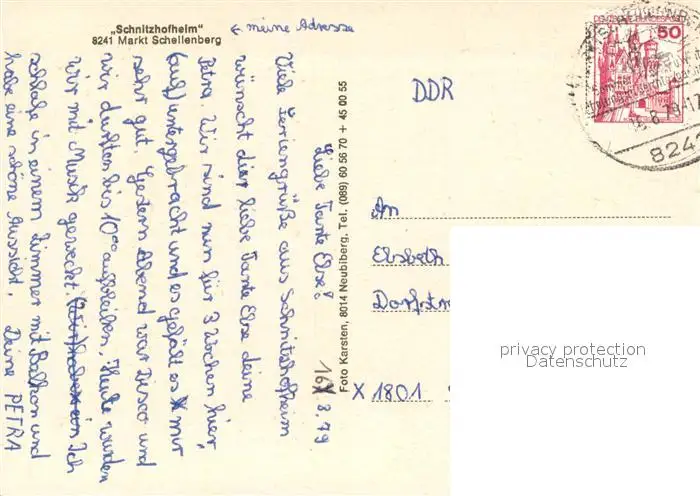 „Schnitzhofheim"
8241 Markt Schellenberg
← meine Adresse
16 8.79
Liebe Tante Else!
Viele Feriengrüße aus Schnitzhofheim
wünscht dir liebe Tante Else deine
Petra. Wir sind nun für 3 Wochen hier
(auf) untergebracht und es gefällt es mir
sehr gut. Gestern Abend war Disco und
wir durften bis 10°° aufbleiben. Heute wurden
wir mit Musik geweckt. (Wir haben ein Ich
schlafe in einem Zimmer mit Balkon und
habe eine schöne Aussicht. Deine PETRA
Foto Karsten, 8014 Neubiberg, Tel. (089) 60 56 70 + 45 00 55
DDR
DEUTSCHE BUNDESPOST
50
16.8.79-17
8241
An
Elsbeth
Dorfstr
X 1801
privacy protection
Datenschutz